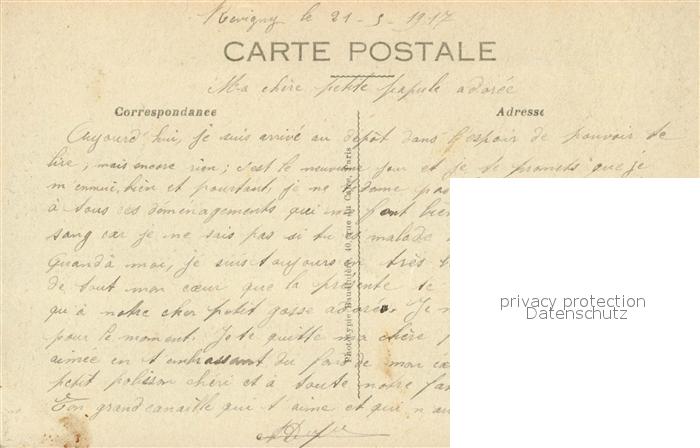 Revigny le 21-3-1917
CARTE POSTALE
Ma chère petite adorée
Correspondance
Adresse
Aujourd'hui, je suis arrivé au dépôt dans l'espoir de pouvoir te
lire, mais encore rien; c'est le neuvième jour et je te promets que je
m'ennui, bien et pourtant, je ne te
à tous ces déménagements qui me font bien
sang car je ne sais pas si tu es malade
Quand à moi, je suis toujours en très
de tout mon cœur que la présente te
qu'à notre cher petit gosse adoré. Je
pour le moment. Je te quitte ma chère
aimée en t'embrassant du fond de mon
petit polisson chéri et à toute notre
Ton grand canaille qui t'aime et qui
Phototypie Baudinière, 40, rue du Caire, Paris
privacy protection
Datenschutz